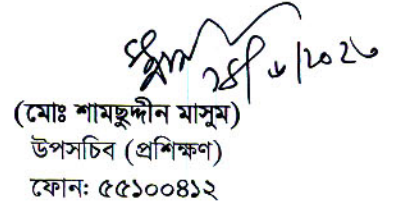 (মোঃ শামছুদ্দীন মাসুম)
উপসচিব (প্রশিক্ষণ)
ফোন: ৫৫১০০৪১২